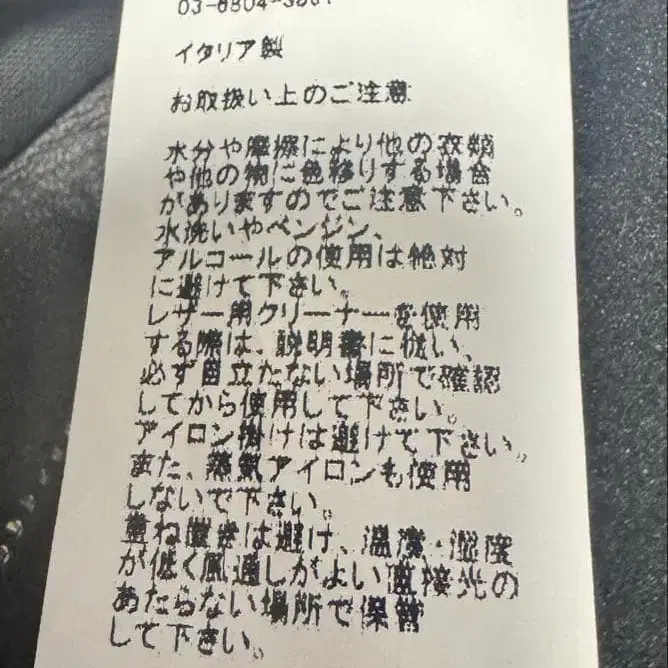 イタリア製
お取扱い上のご注意
水分や摩擦により他の衣類
や他の物に色移りする場合
がありますのでご注意下さい。
水洗いやベンジン、
アルコールの使用は絶対
に避けて下さい。
レザー用クリーナーを使用
する際は、説明書に従い、
必ず目立たない場所で確認
してから使用して下さい。
アイロン掛けは避けて下さい。
また、蒸気アイロンも使用
しないで下さい。
重ね置きは避け、温度・湿度
が低く風通しがよい直接光の
あたらない場所で保管
して下さい。